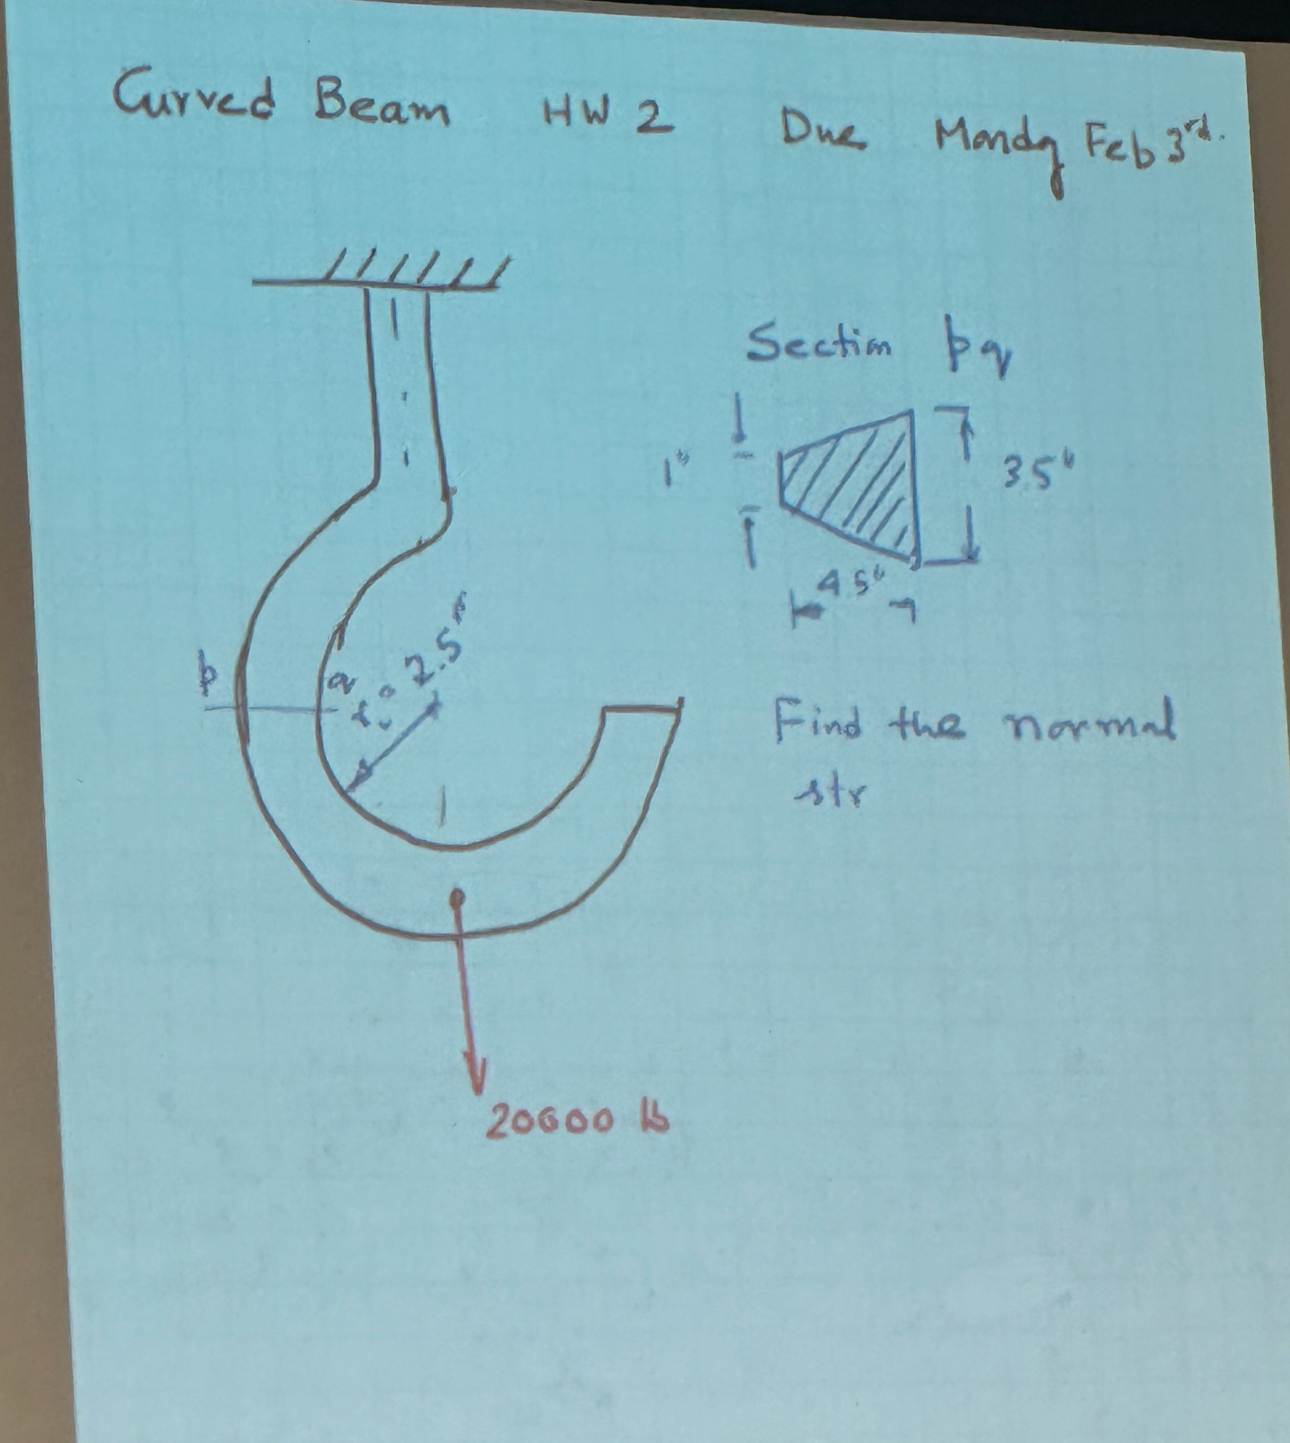 Curved Beam HW 2 Due Monday Feb 3rd.
Section pq
1"
3.5"
4.5"
p
q
r = 2.5"
Find the normal
str
20000 lb